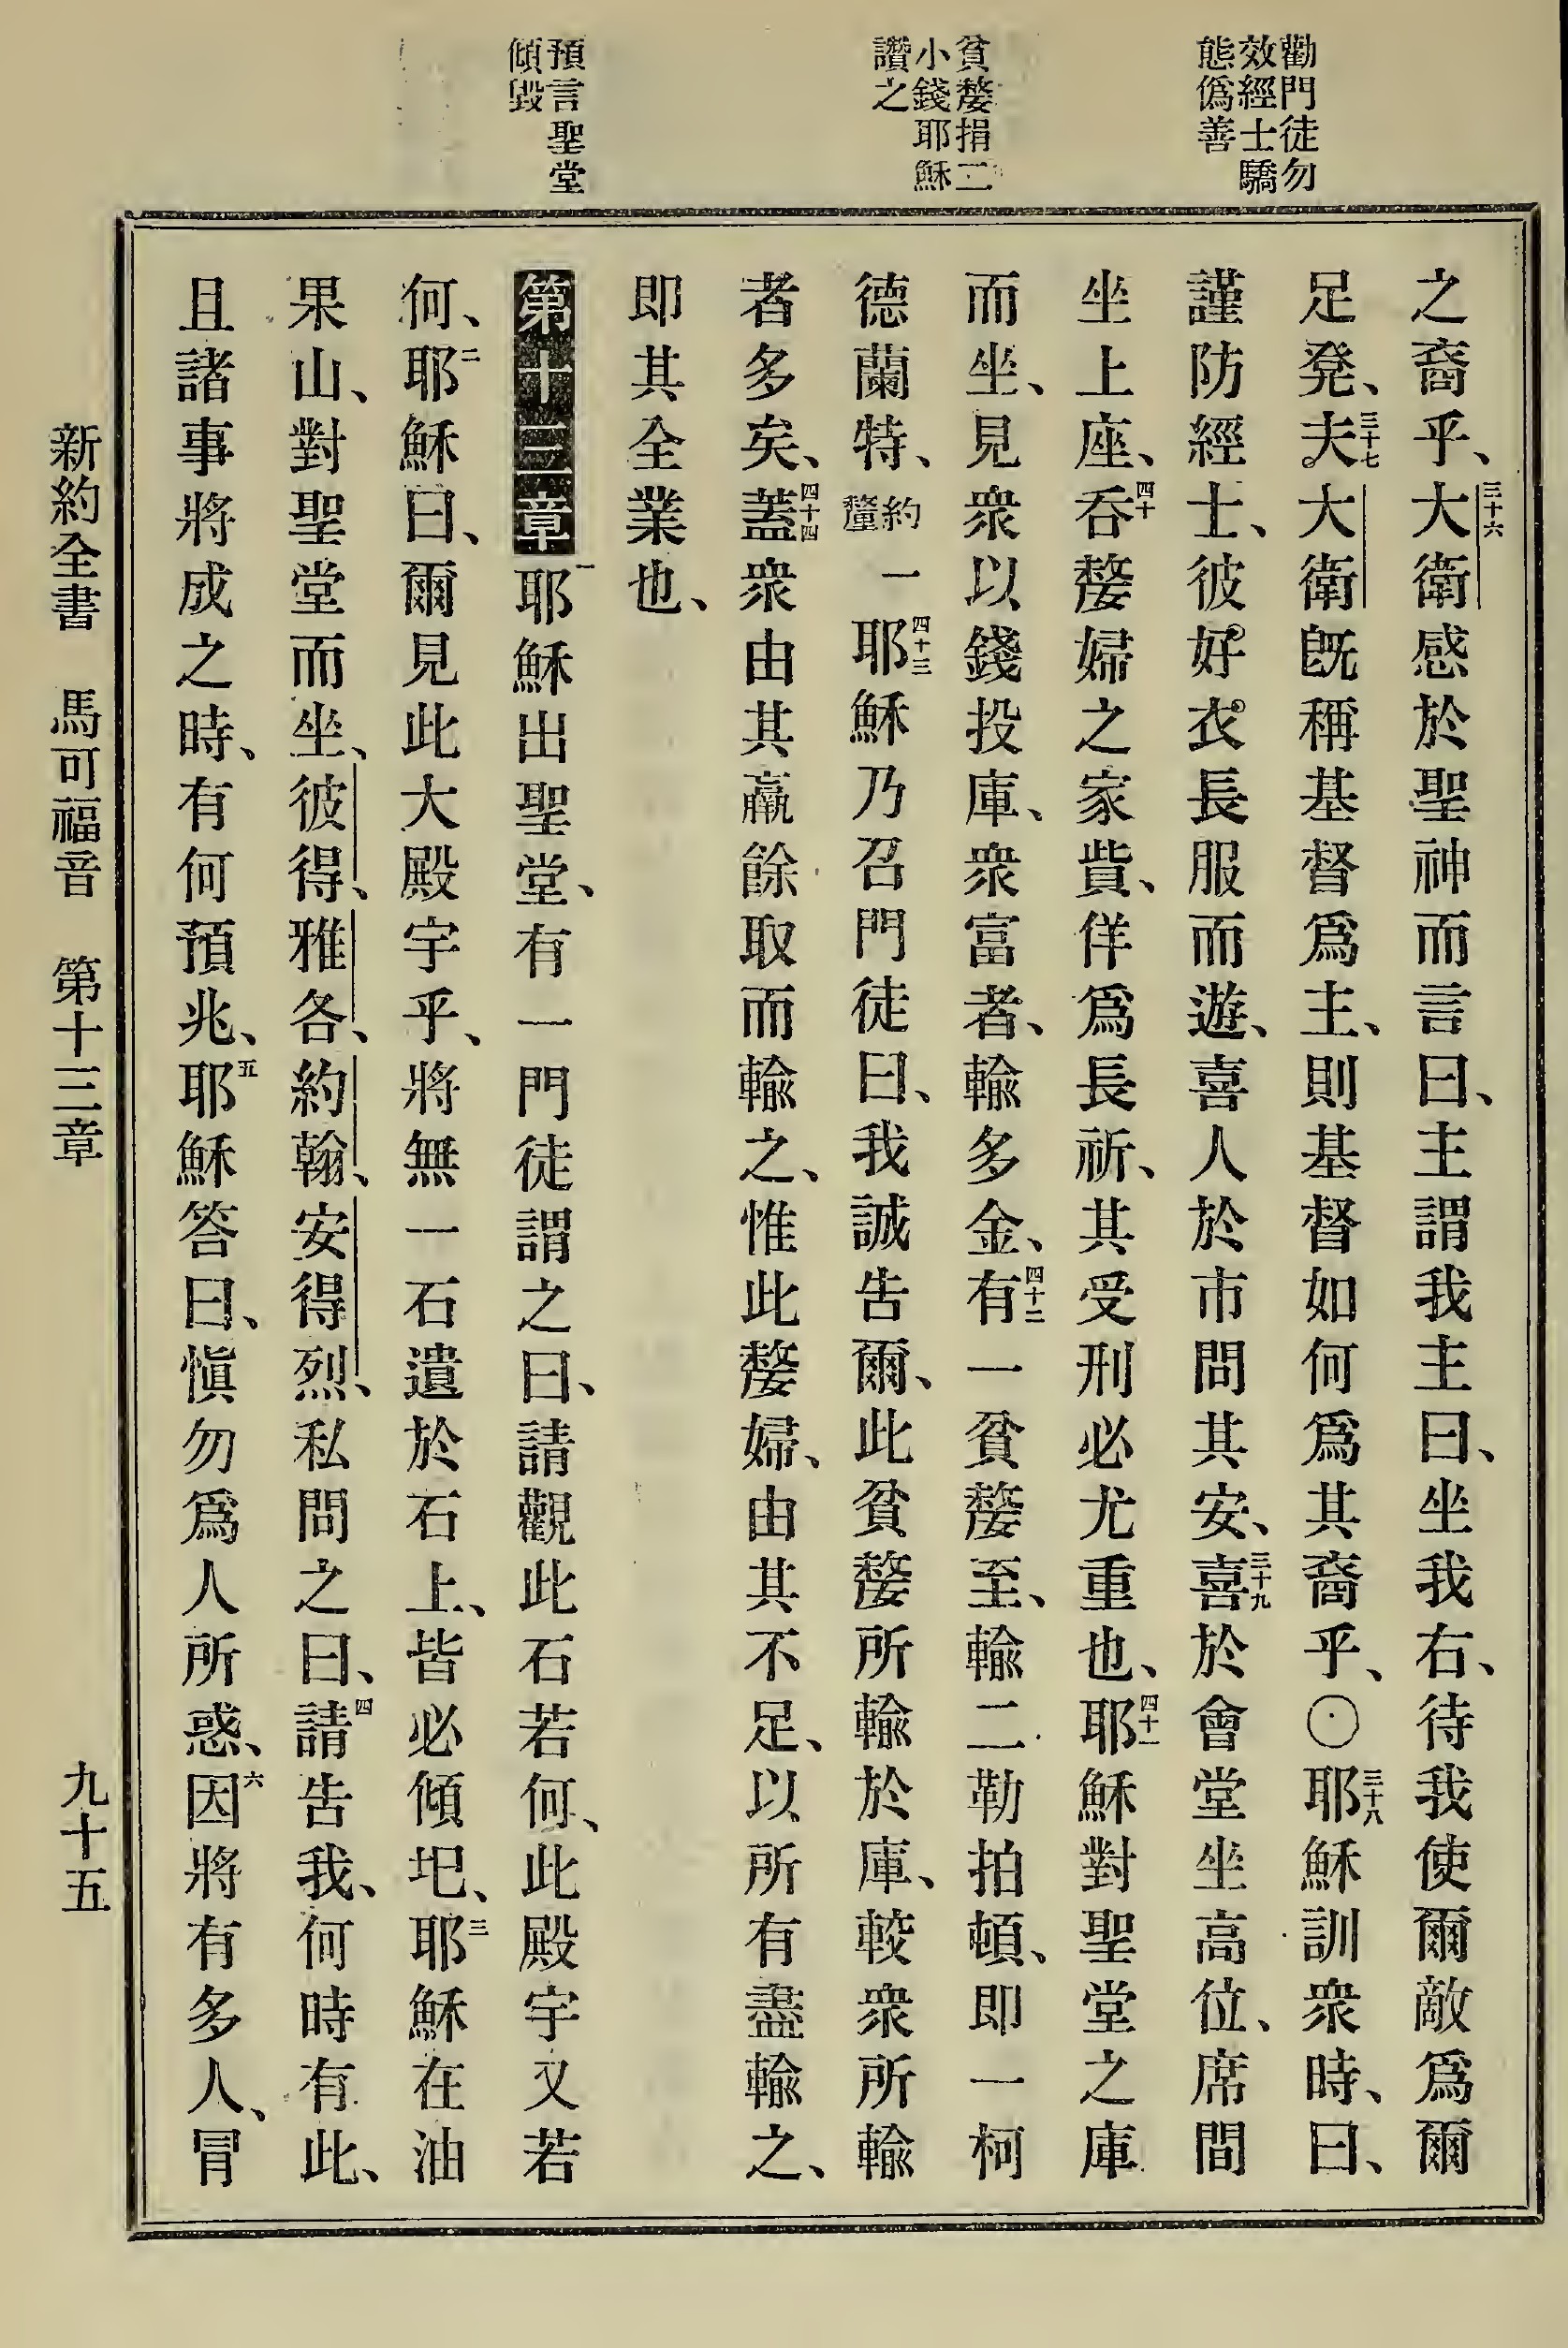 勸門徒勿
效經士驕
態僞善
貧嫠捐二
小錢耶穌
讚之
預言聖堂
傾毀
之裔乎、三十六大衛感於聖神而言曰、主謂我主曰、坐我右、待我使爾敵爲爾
足凳、三十七夫大衛旣稱基督爲主、則基督如何爲其裔乎、〇三十八耶穌訓衆時、曰、
謹防經士、彼好衣長服而遊、喜人於市問其安、三十九喜於會堂坐高位、席間
坐上座、四十吞嫠婦之家貲、佯爲長祈、其受刑必尤重也、四十一耶穌對聖堂之庫
而坐、見衆以錢投庫、衆富者、輸多金、四十二有一貧嫠至、輸二勒拍頓、即一柯
德蘭特、約一釐四十三耶穌乃召門徒曰、我誠告爾、此貧嫠所輸於庫、較衆所輸
者多矣、四十四蓋衆由其贏餘取而輸之、惟此嫠婦、由其不足、以所有盡輸之、
即其全業也、
第十三章一耶穌出聖堂、有一門徒謂之曰、請觀此石若何、此殿宇又若
何、二耶穌曰、爾見此大殿宇乎、將無一石遺於石上、皆必傾圯、三耶穌在油
果山、對聖堂而坐、彼得、雅各、約翰、安得烈、私問之曰、四請告我、何時有此、
且諸事將成之時、有何預兆、五耶穌答曰、愼勿爲人所惑、六因將有多人、冒
新約全書 馬可福音 第十三章 九十五